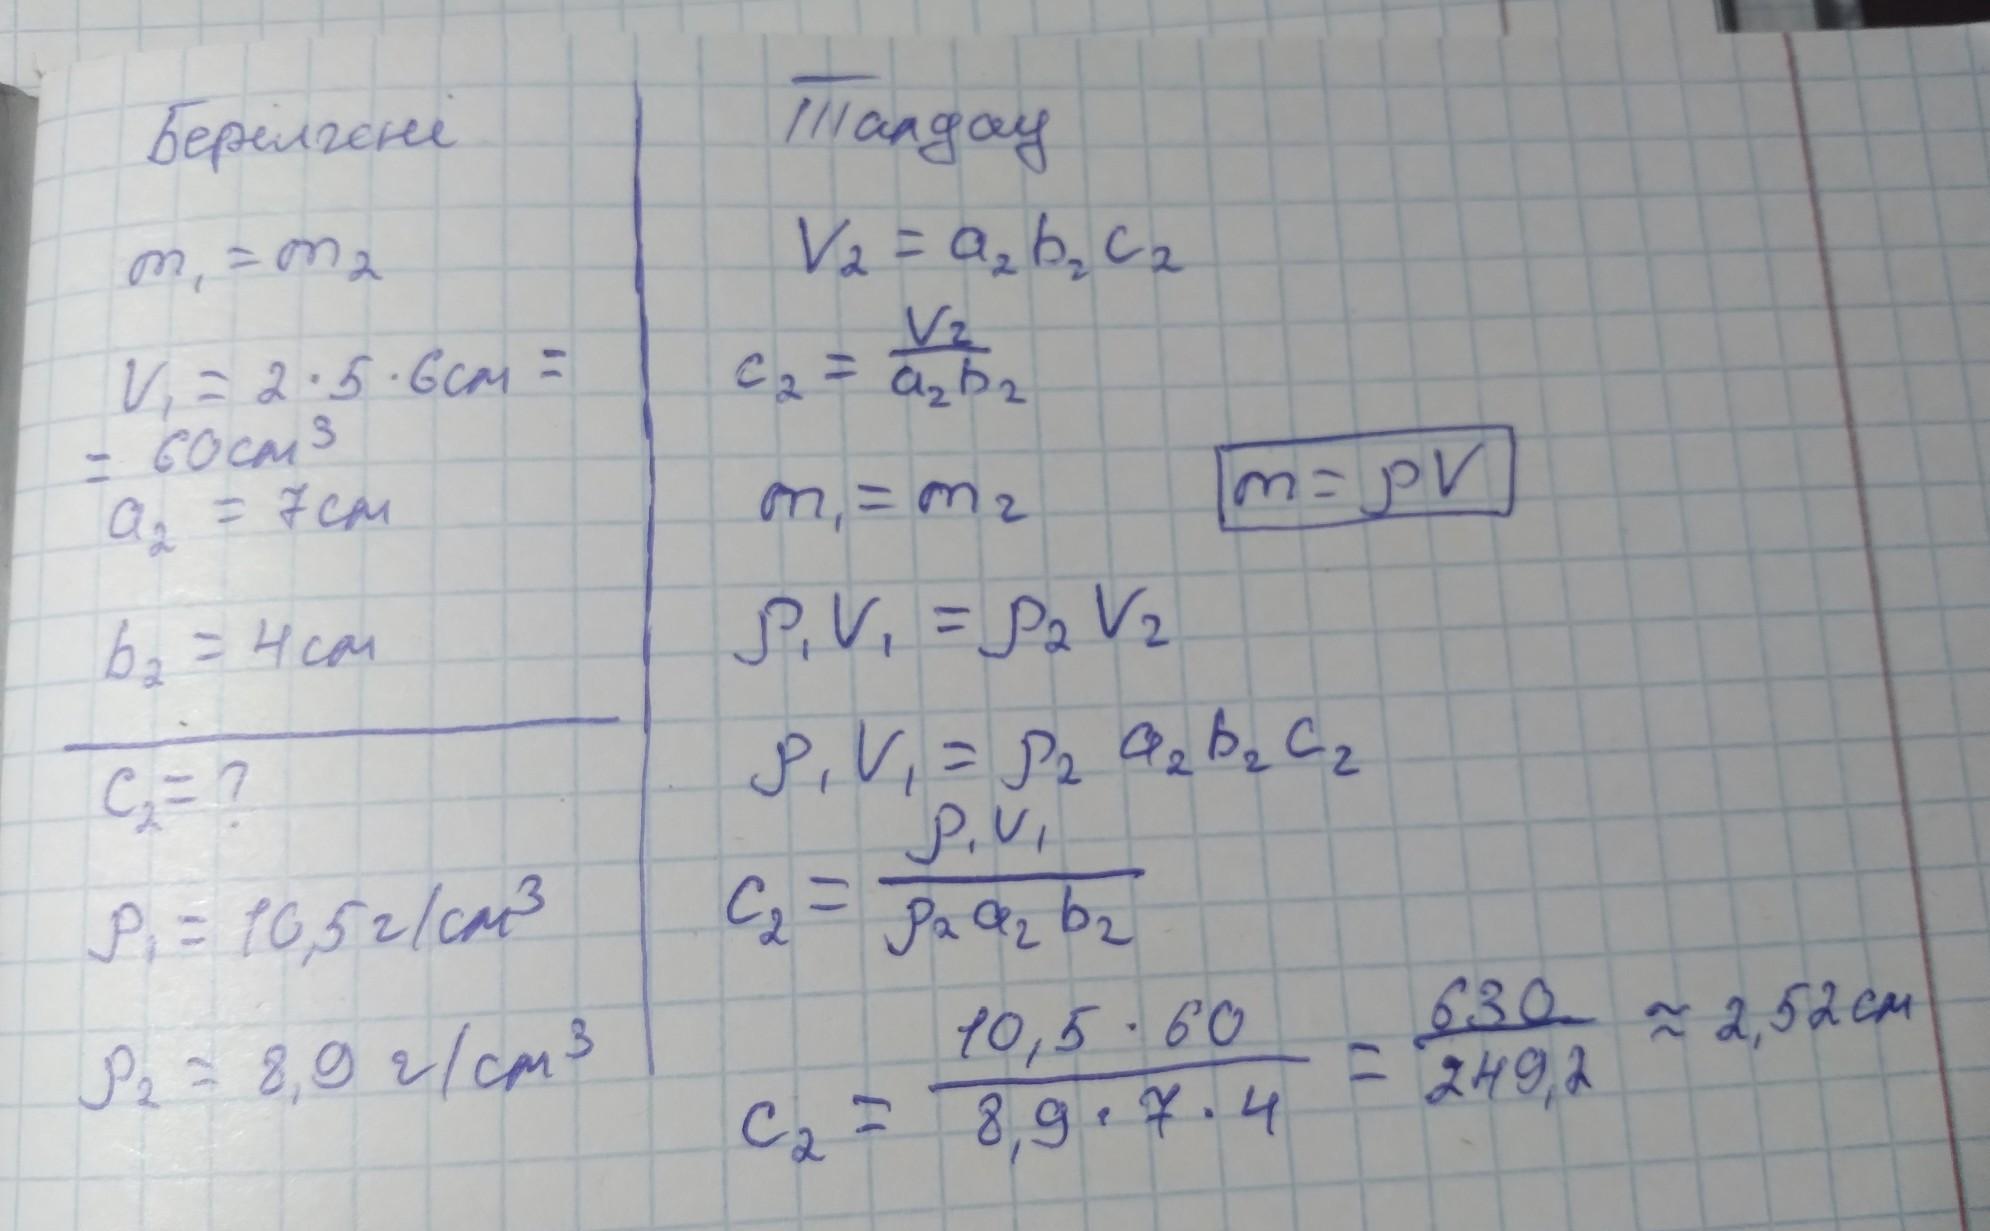 Берілгені
m₁ = m₂
V₁ = 2 · 5 · 6см =
= 60см³
a₂ = 7см
b₂ = 4см
c₂ = ?
ρ₁ = 10,5 г/см³
ρ₂ = 8,9 г/см³
Талдау
V₂ = a₂ b₂ c₂
c₂ = V₂ / a₂ b₂
m₁ = m₂ m = ρV
ρ₁ V₁ = ρ₂ V₂
ρ₁ V₁ = ρ₂ a₂ b₂ c₂
c₂ = ρ₁ V₁ / ρ₂ a₂ b₂
c₂ = 10,5 · 60 / 8,9 · 7 · 4 = 630 / 249,2 ≈ 2,52см